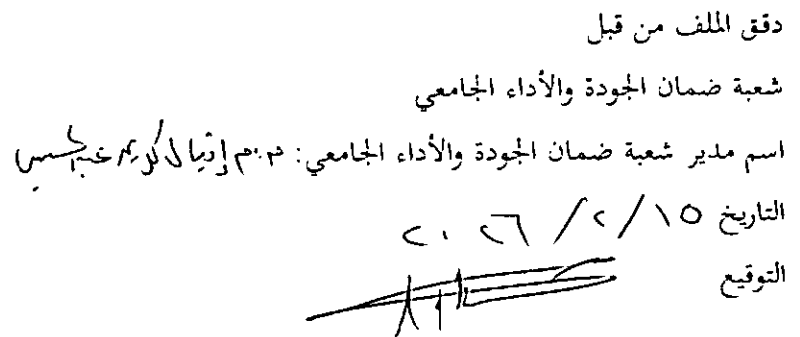 دقق الملف من قبل
شعبة ضمان الجودة والأداء الجامعي
اسم مدير شعبة ضمان الجودة والأداء الجامعي: م.م إقبال كريم عبد الحسين
التاريخ ١٥/٢/٢٠٢٦
التوقيع